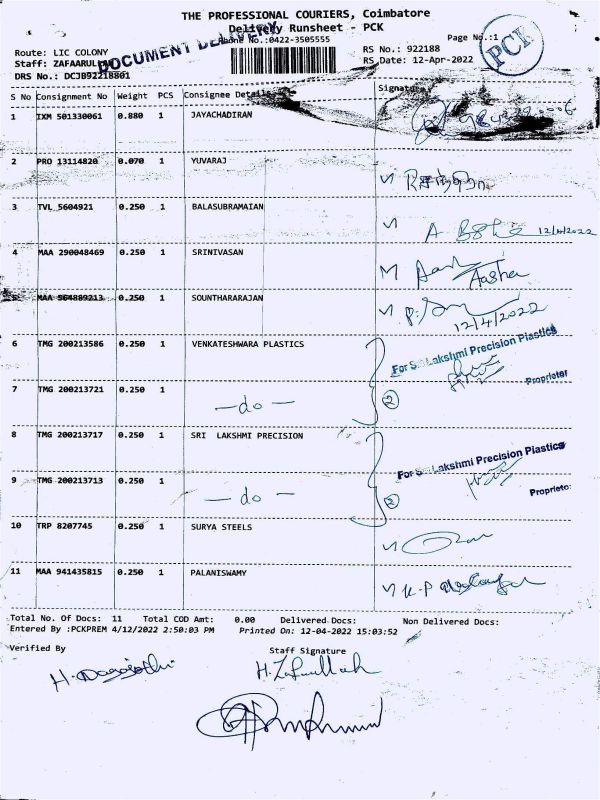 THE PROFESSIONAL COURIERS, Coimbatore
Delivery Runsheet - PCK
Phone No.:0422-3505555
Page No.:1
PCK
DOCUMENT DELIVERY
Route: LIC COLONY
RS No.: 922188
Staff: ZAFAARULLAH
RS Date: 12-Apr-2022
DRS No.: DCJB92218801
S No Consignment No Weight PCS Consignee Details Signature
1 IXM 501330061 0.880 1 JAYACHADIRAN
2 PRO 13114820 0.070 1 YUVARAJ
3 TVL 5604921 0.250 1 BALASUBRAMAIAN 12/4/2022
4 MAA 290048469 0.250 1 SRINIVASAN Aasha
5 MAA 564889213 0.250 1 SOUNTHARARAJAN 12/4/2022
6 TMG 200213586 0.250 1 VENKATESHWARA PLASTICS For Sri Lakshmi Precision Plastics
Proprietor
7 TMG 200213721 0.250 1 -do- 2
8 TMG 200213717 0.250 1 SRI LAKSHMI PRECISION For Sri Lakshmi Precision Plastics
Proprietor
9 TMG 200213713 0.250 1 -do- 2
10 TRP 8207745 0.250 1 SURYA STEELS
11 MAA 941435815 0.250 1 PALANISWAMY
Total No. Of Docs: 11 Total COD Amt: 0.00 Delivered Docs: Non Delivered Docs:
Entered By :PCKPREM 4/12/2022 2:50:03 PM Printed On: 12-04-2022 15:03:52
Verified By Staff Signature
H. Zafarullah